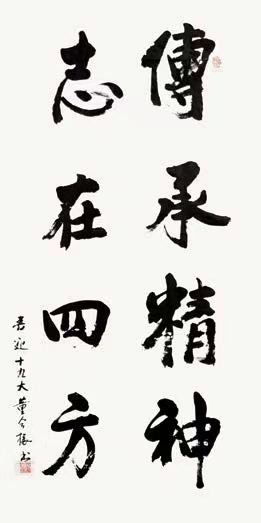 傳承精神
志在四方
喜迎十九大董令振书